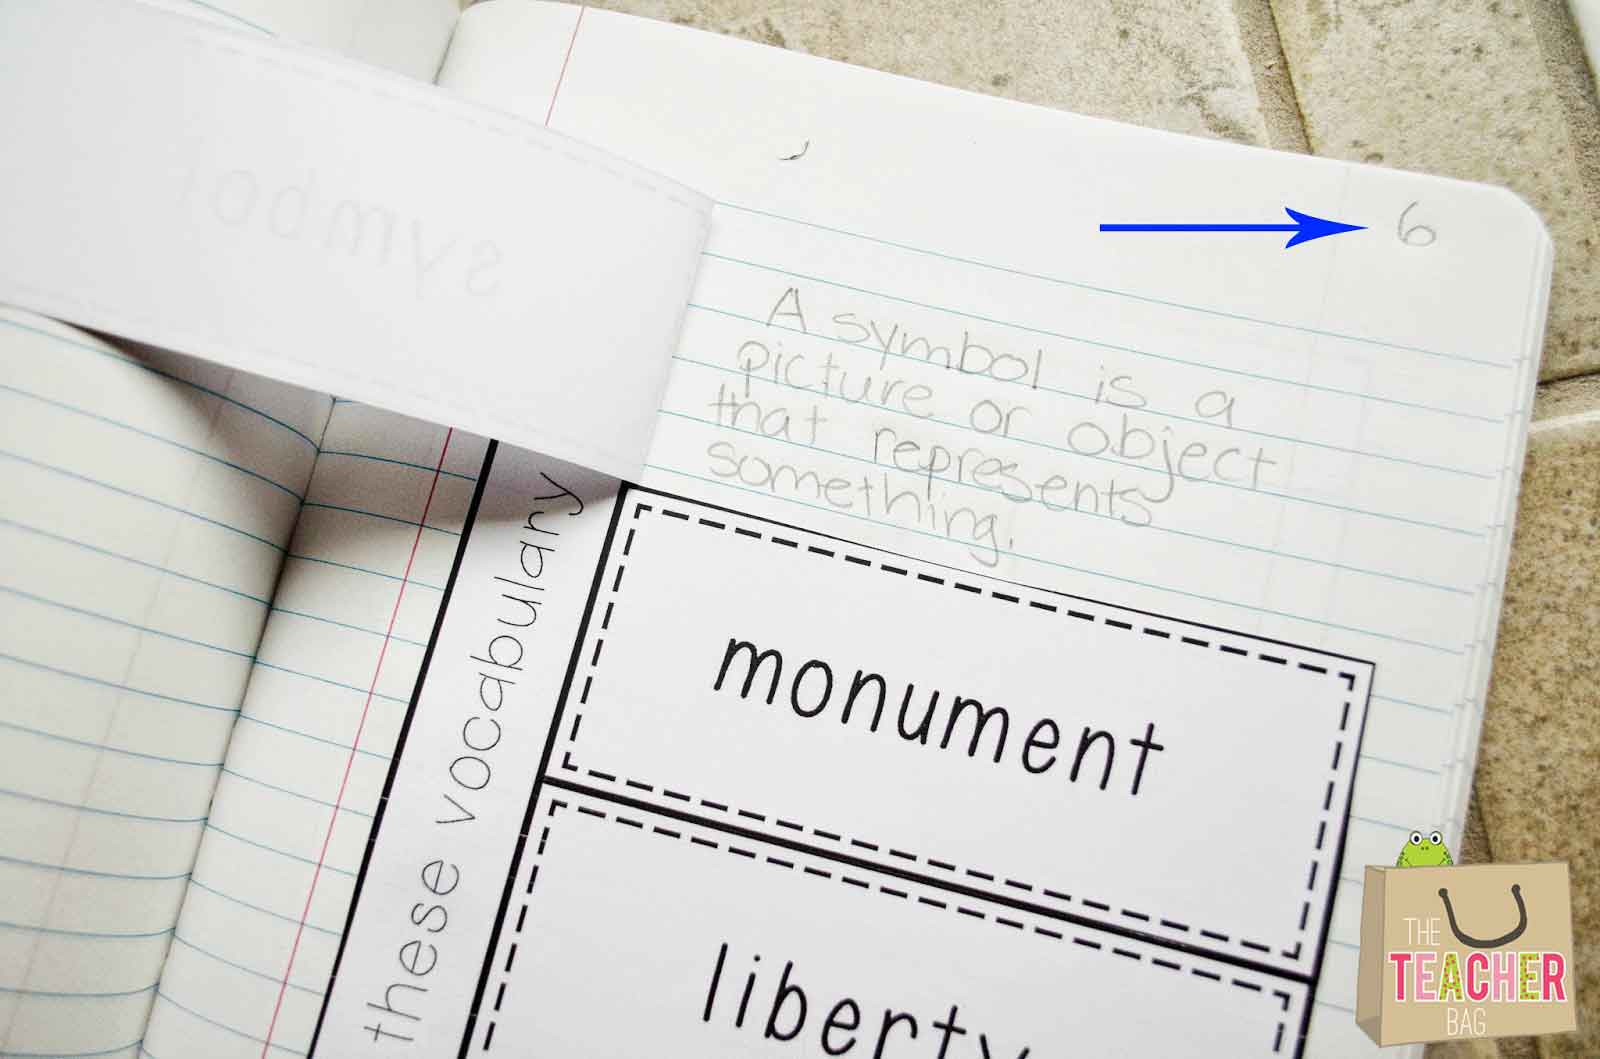 6
symbol
A symbol is a
picture or object
that represents
something.
these vocabulary
monument
liberty
THE
TEACHER
BAG